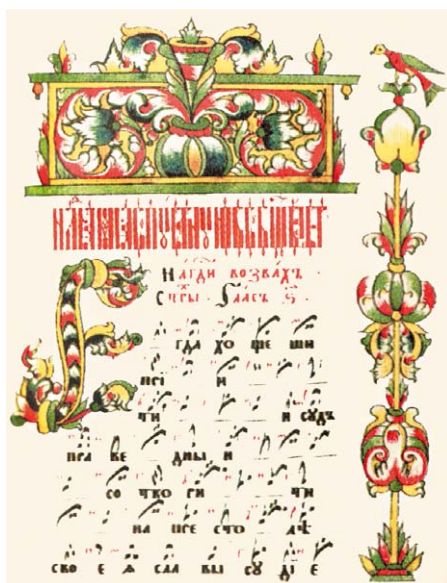 На гди возвахъ ·
Стры · Гласъ ѕ
Е гда хо ще ши
прі и
ти и судъ
пра ве дны и
со тво ри ти
на пре сто лѣ
сво е ѧ сла вы су ді е